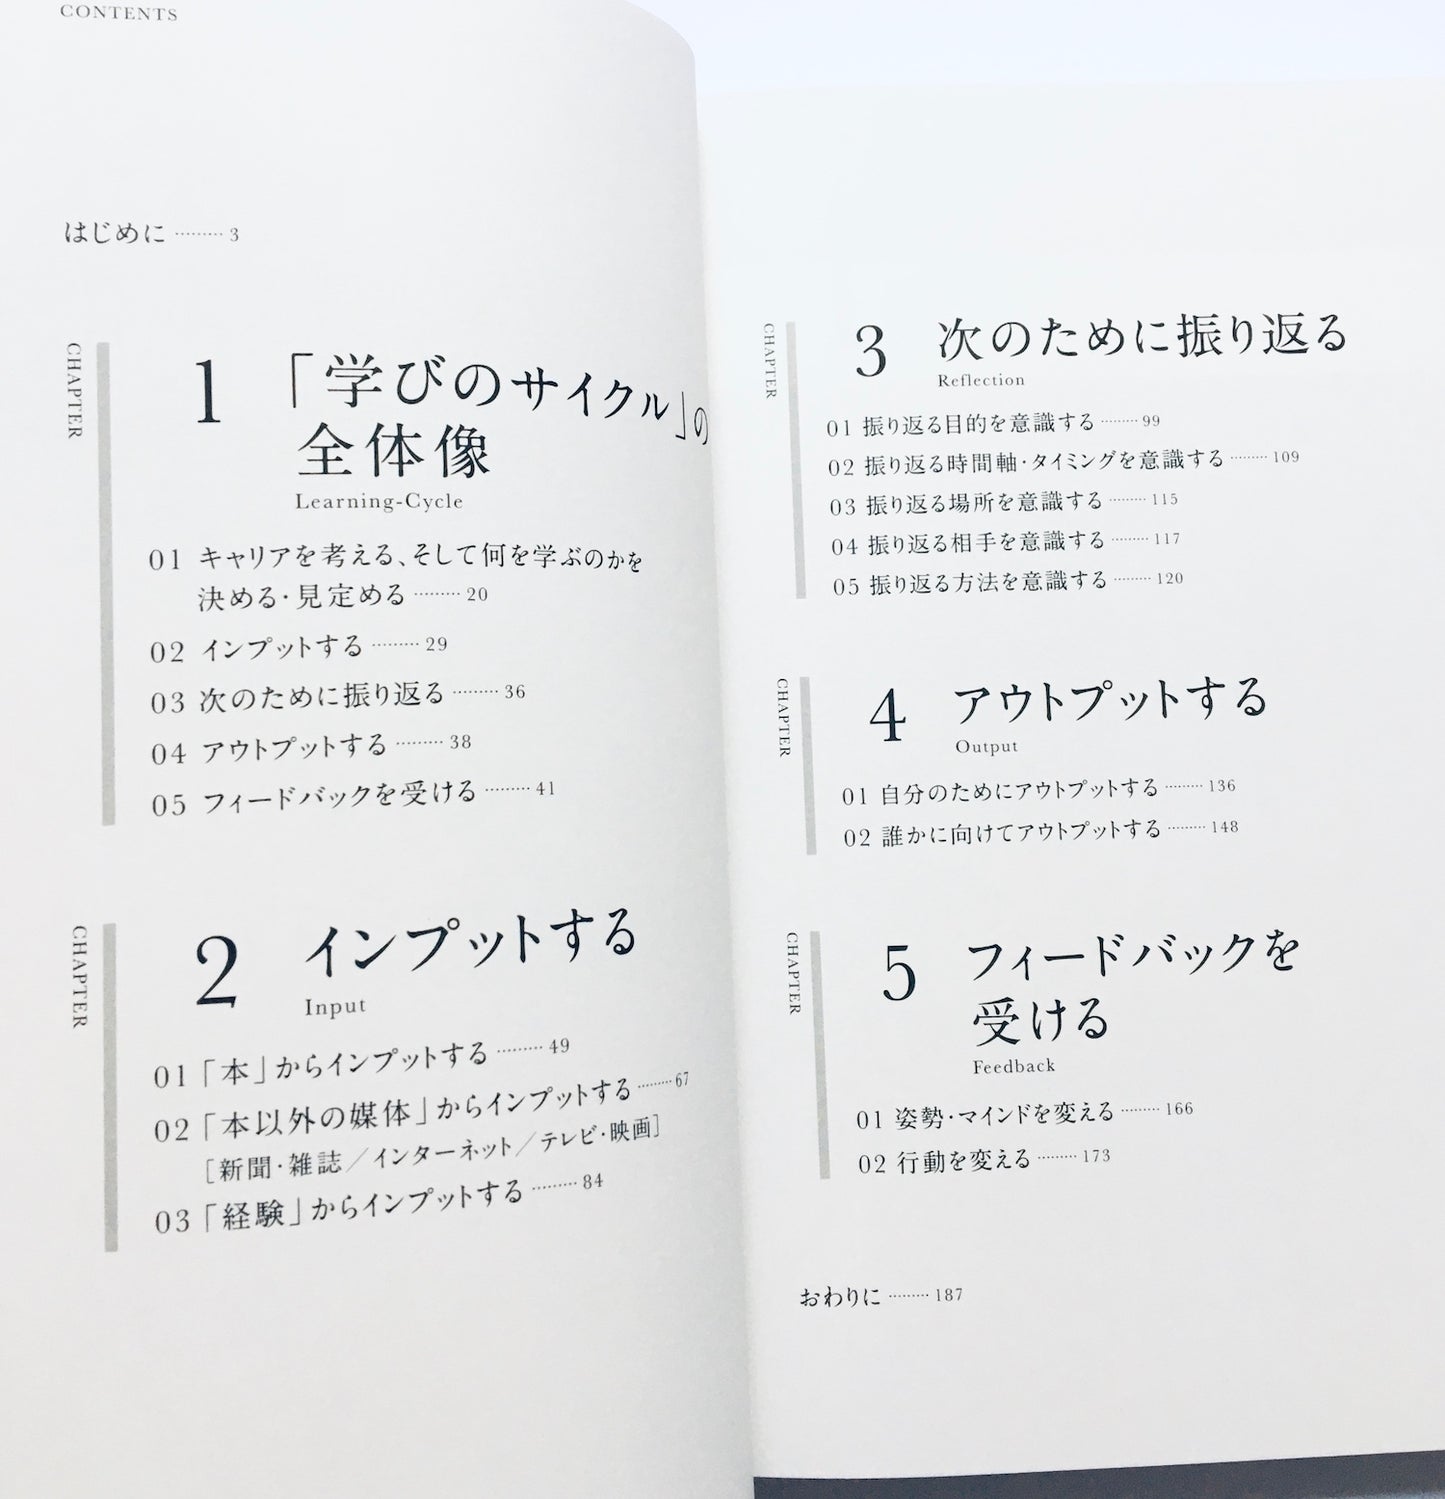 CONTENTS
はじめに ……… 3
CHAPTER
1 「学びのサイクル」の
全体像
Learning-Cycle
01 キャリアを考える、そして何を学ぶのかを
決める・見定める ……… 20
02 インプットする ……… 29
03 次のために振り返る ……… 36
04 アウトプットする ……… 38
05 フィードバックを受ける ……… 41
CHAPTER
2 インプットする
Input
01 「本」からインプットする ……… 49
02 「本以外の媒体」からインプットする ……… 67
[新聞・雑誌／インターネット／テレビ・映画]
03 「経験」からインプットする ……… 84
CHAPTER
3 次のために振り返る
Reflection
01 振り返る目的を意識する ……… 99
02 振り返る時間軸・タイミングを意識する ……… 109
03 振り返る場所を意識する ……… 115
04 振り返る相手を意識する ……… 117
05 振り返る方法を意識する ……… 120
CHAPTER
4 アウトプットする
Output
01 自分のためにアウトプットする ……… 136
02 誰かに向けてアウトプットする ……… 148
CHAPTER
5 フィードバックを
受ける
Feedback
01 姿勢・マインドを変える ……… 166
02 行動を変える ……… 173
おわりに ……… 187